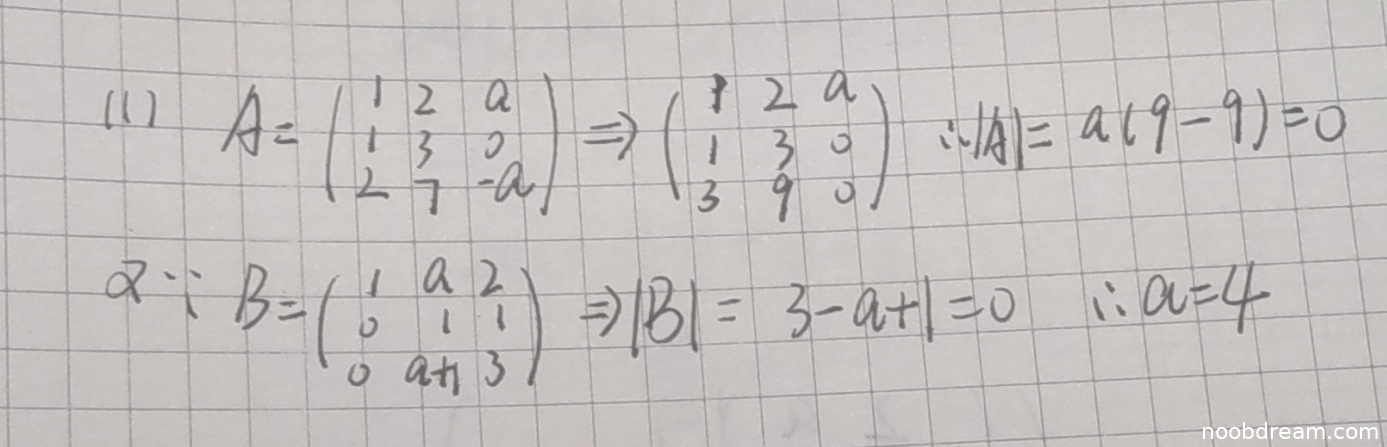 (1) A = (1 2 a; 1 3 0; 2 7 -a) ⇒ (1 2 a; 1 3 0; 3 9 0) ∴|A| = a(9-9)=0
又∵ B = (1 a 2; 0 1 1; 0 a+1 3) ⇒|B| = 3-a+1=0 ∴a=4
noobdream.com